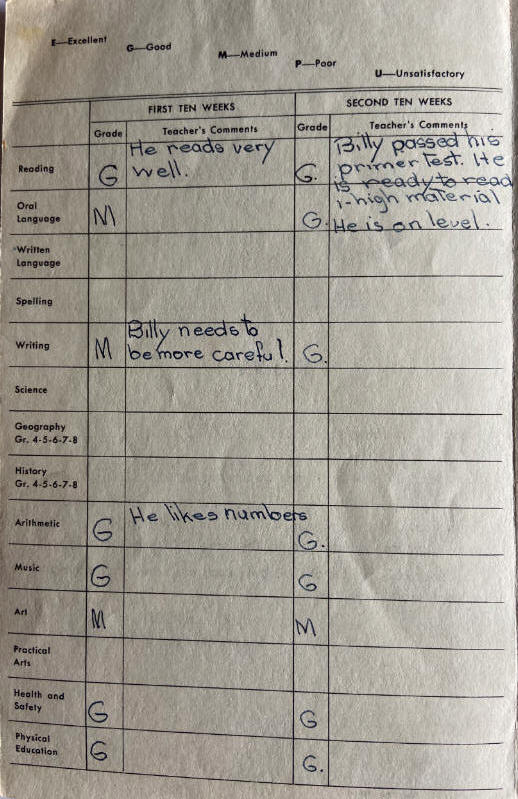 E—Excellent
G—Good
M—Medium
P—Poor
U—Unsatisfactory
FIRST TEN WEEKS SECOND TEN WEEKS
Grade Teacher's Comments Grade Teacher's Comments
Reading G He reads very well. G. Billy passed his primer test. He is ready to read
Oral Language M G. 1-high material He is on level.
Written Language
Spelling
Writing M Billy needs to be more careful. G.
Science
Geography Gr. 4-5-6-7-8
History Gr. 4-5-6-7-8
Arithmetic G He likes numbers G.
Music G G
Art M M
Practical Arts
Health and Safety G G
Physical Education G G.